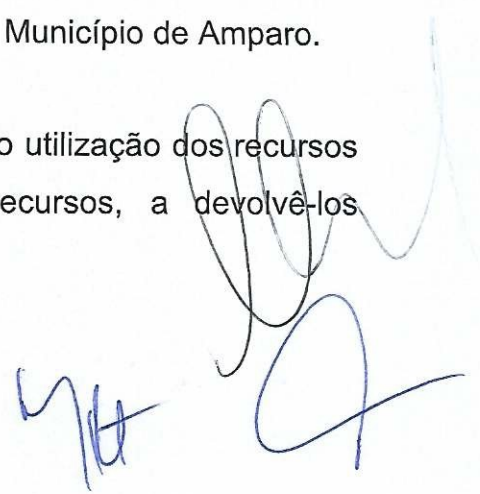 Município de Amparo.
o utilização dos recursos
ecursos, a devolvê-los